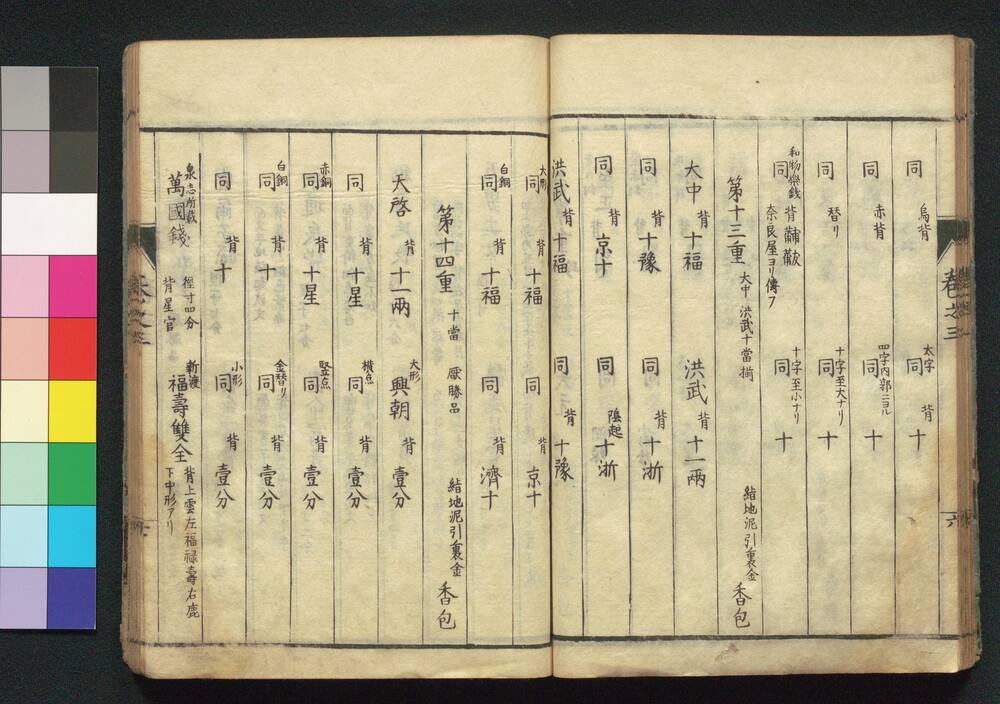 同 烏背 同 太字 背 十
同 赤背 同 四字内郭ニヨル 十
同 替リ 同 十字至大ナリ 十
和物樂銭 同 背 奈良屋ヨリ傳フ 同 十字至小ナリ 十
第十三重 大中 洪武十當揃 紺地泥引裏金 香包
大中 背 十福 洪武 背 十一兩
同 背 十豫 同 背 十浙
同 背 京十 同 陰起 十浙
洪武 背 十福 同 背 十豫
同 大形 背 十福 同 背 京十
同 白銅 背 十福 同 背 濟十
第十四重 十當 厭勝品 紺地泥引裏金 香包
天啓 背 十一兩 大形 興朝 背 壹分
同 背 十星 同 横点 背 壹分
同 赤銅 背 十星 同 竪点 背 壹分
同 白銅 背 十 同 金替リ 背 壹分
同 背 十 同 小形 背 壹分
泉志所載 萬國錢 徑寸四分 背星官 新渡 福壽雙全 背上雲左福禄壽右鹿 下中形アリ